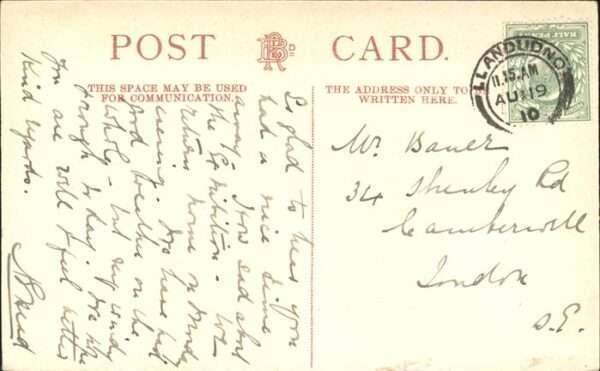 POST CARD.
THIS SPACE MAY BE USED
FOR COMMUNICATION.
THE ADDRESS ONLY TO
WRITTEN HERE.
LLANDUDNO
11.15.AM
AU 19
10
HALF PENNY
So glad to hear you
had a nice time
away. How sad about
the Exhibition. We
return home on Monday
evening. We have had
good weather on the
whole - but very windy
to day. We
are well & feel better
Kind regards.
Mr. Bauer
34 Shenley Rd
Camberwell
London
S.E.